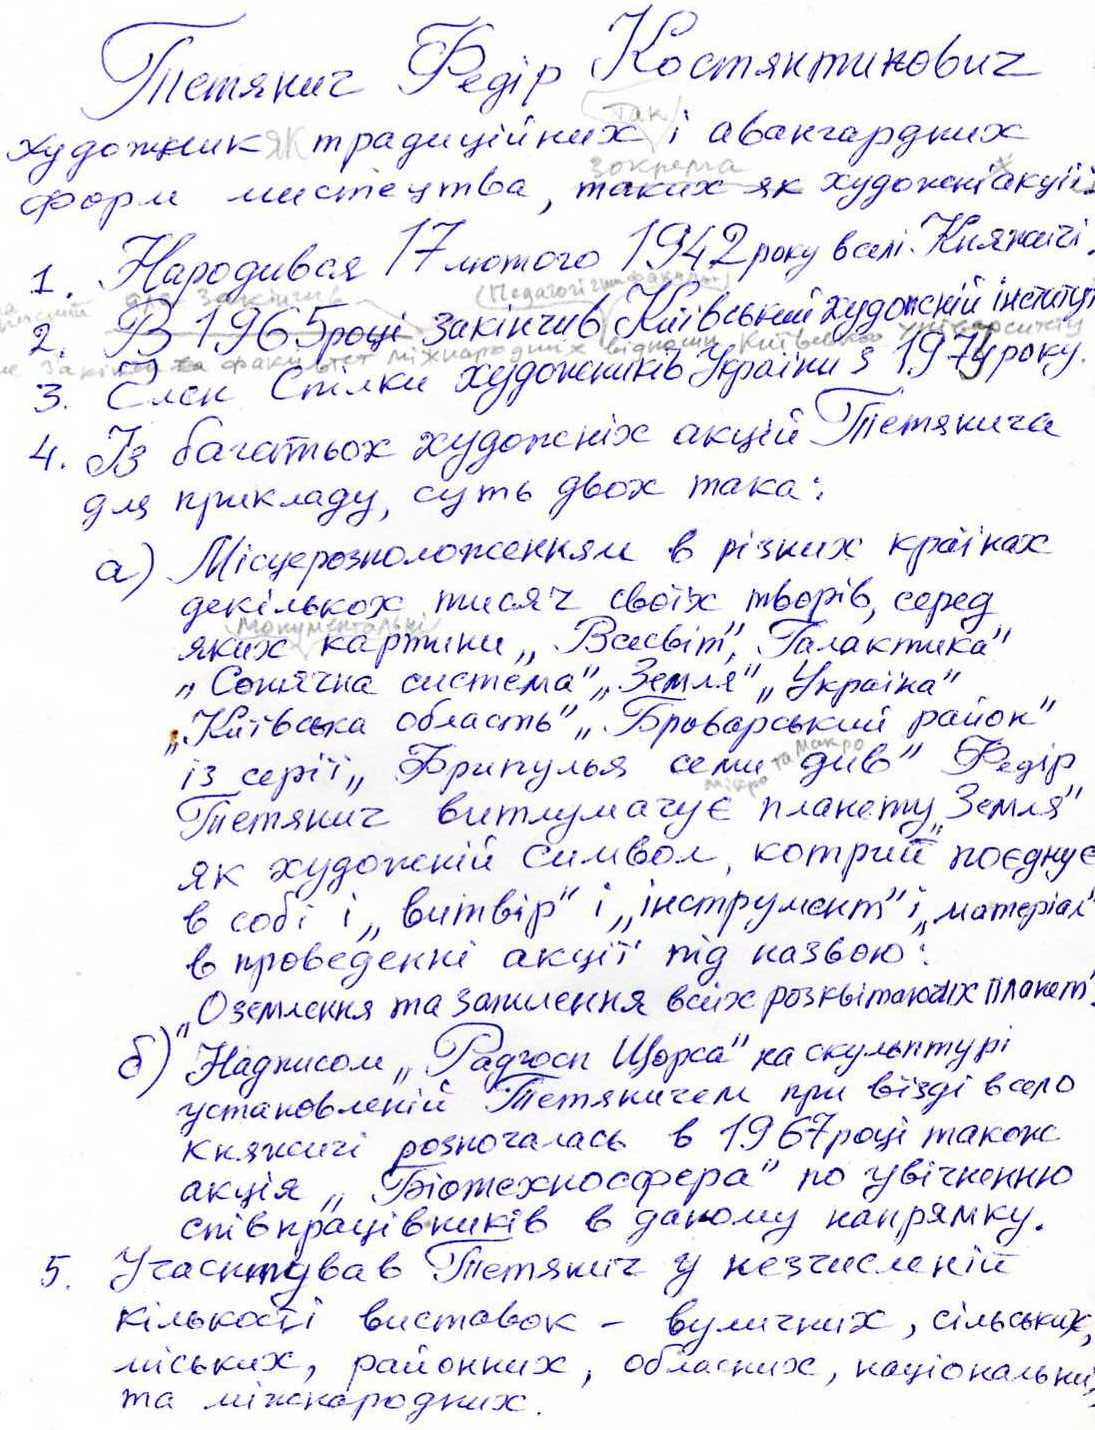 Тетянич Федір Костянтинович
Так
художник як традиційних і авангардних
зокрема
форм мистецтва, таких як художні акції.
1. Народився 17 лютого 1942 року в селі Княжичі.
закінчив (Педагогічний факультет)
2. В 1965 році закінчив Київський художній інститут
закінчив факультет міжнародних відносин Київського університету
3. Член Спілки художників України з 1974 року.
4. Із багатьох художніх акцій Тетянича
для прикладу, суть двох така:
а) Місцерозположенням в різних країнах
декількох тисяч своїх творів, серед
монументальні
яких картини „Всесвіт", „Галактика"
„Сонячна система" „Земля" „Україна"
„Київська область" „Броварський район"
мікро та макро
із серії „Фрипулья семи див" Федір
Тетянич витлумачує планету „Земля"
як художній символ, котрий поєднує
в собі і „витвір" і „інструмент" і „матеріал"
в проведенні акції під назвою:
„Оземлення та заселення всіх розквітаючих планет".
б) Надписом „Радгосп Щорса" на скульптурі
установленій Тетяничем при візді в село
Княжичі розпочалась в 1967 році також
акція „Біотехносфера" по увічненню
співпрацівників в даному напрямку.
5. Участвував Тетянич у незчисленій
кількості виставок – вуличних, сільських,
міських, районних, обласних, національних,
та міжнародних.